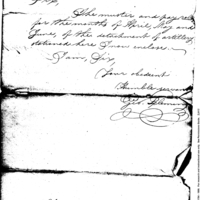 Sir,
The muster and pay rolls
for the months of April, May and
June, of the detachment of artillery
stationed here I now enclose.
I am, Sir,
Your obedient
Humble servant